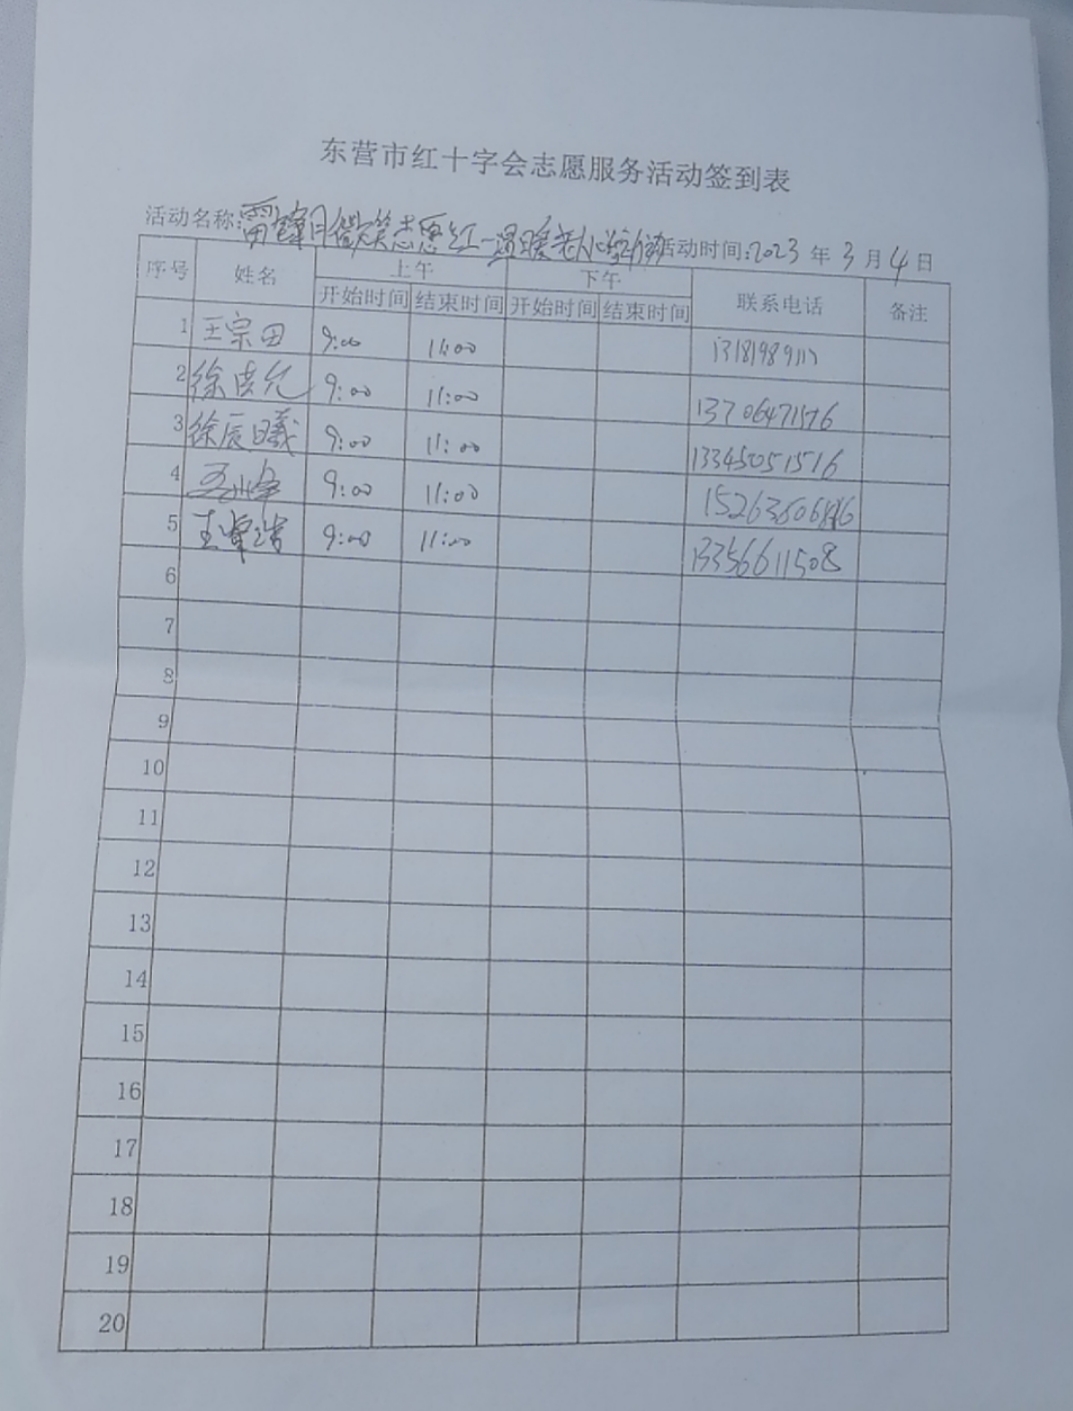 东营市红十字会志愿服务活动签到表
活动名称:雷锋月微笑志愿红一温暖老人心 活动时间:2023年3月4日
序号 姓名 上午 下午 联系电话 备注
开始时间 结束时间 开始时间 结束时间
1 王宗田 9:00 11:00
2 徐 9:00 11:00 13706471576
3 徐辰曦 9:00 11:00 13345051516
4 9:00 11:00
5 王 9:00 11:00 13356611508
6
7
8
9
10
11
12
13
14
15
16
17
18
19
20